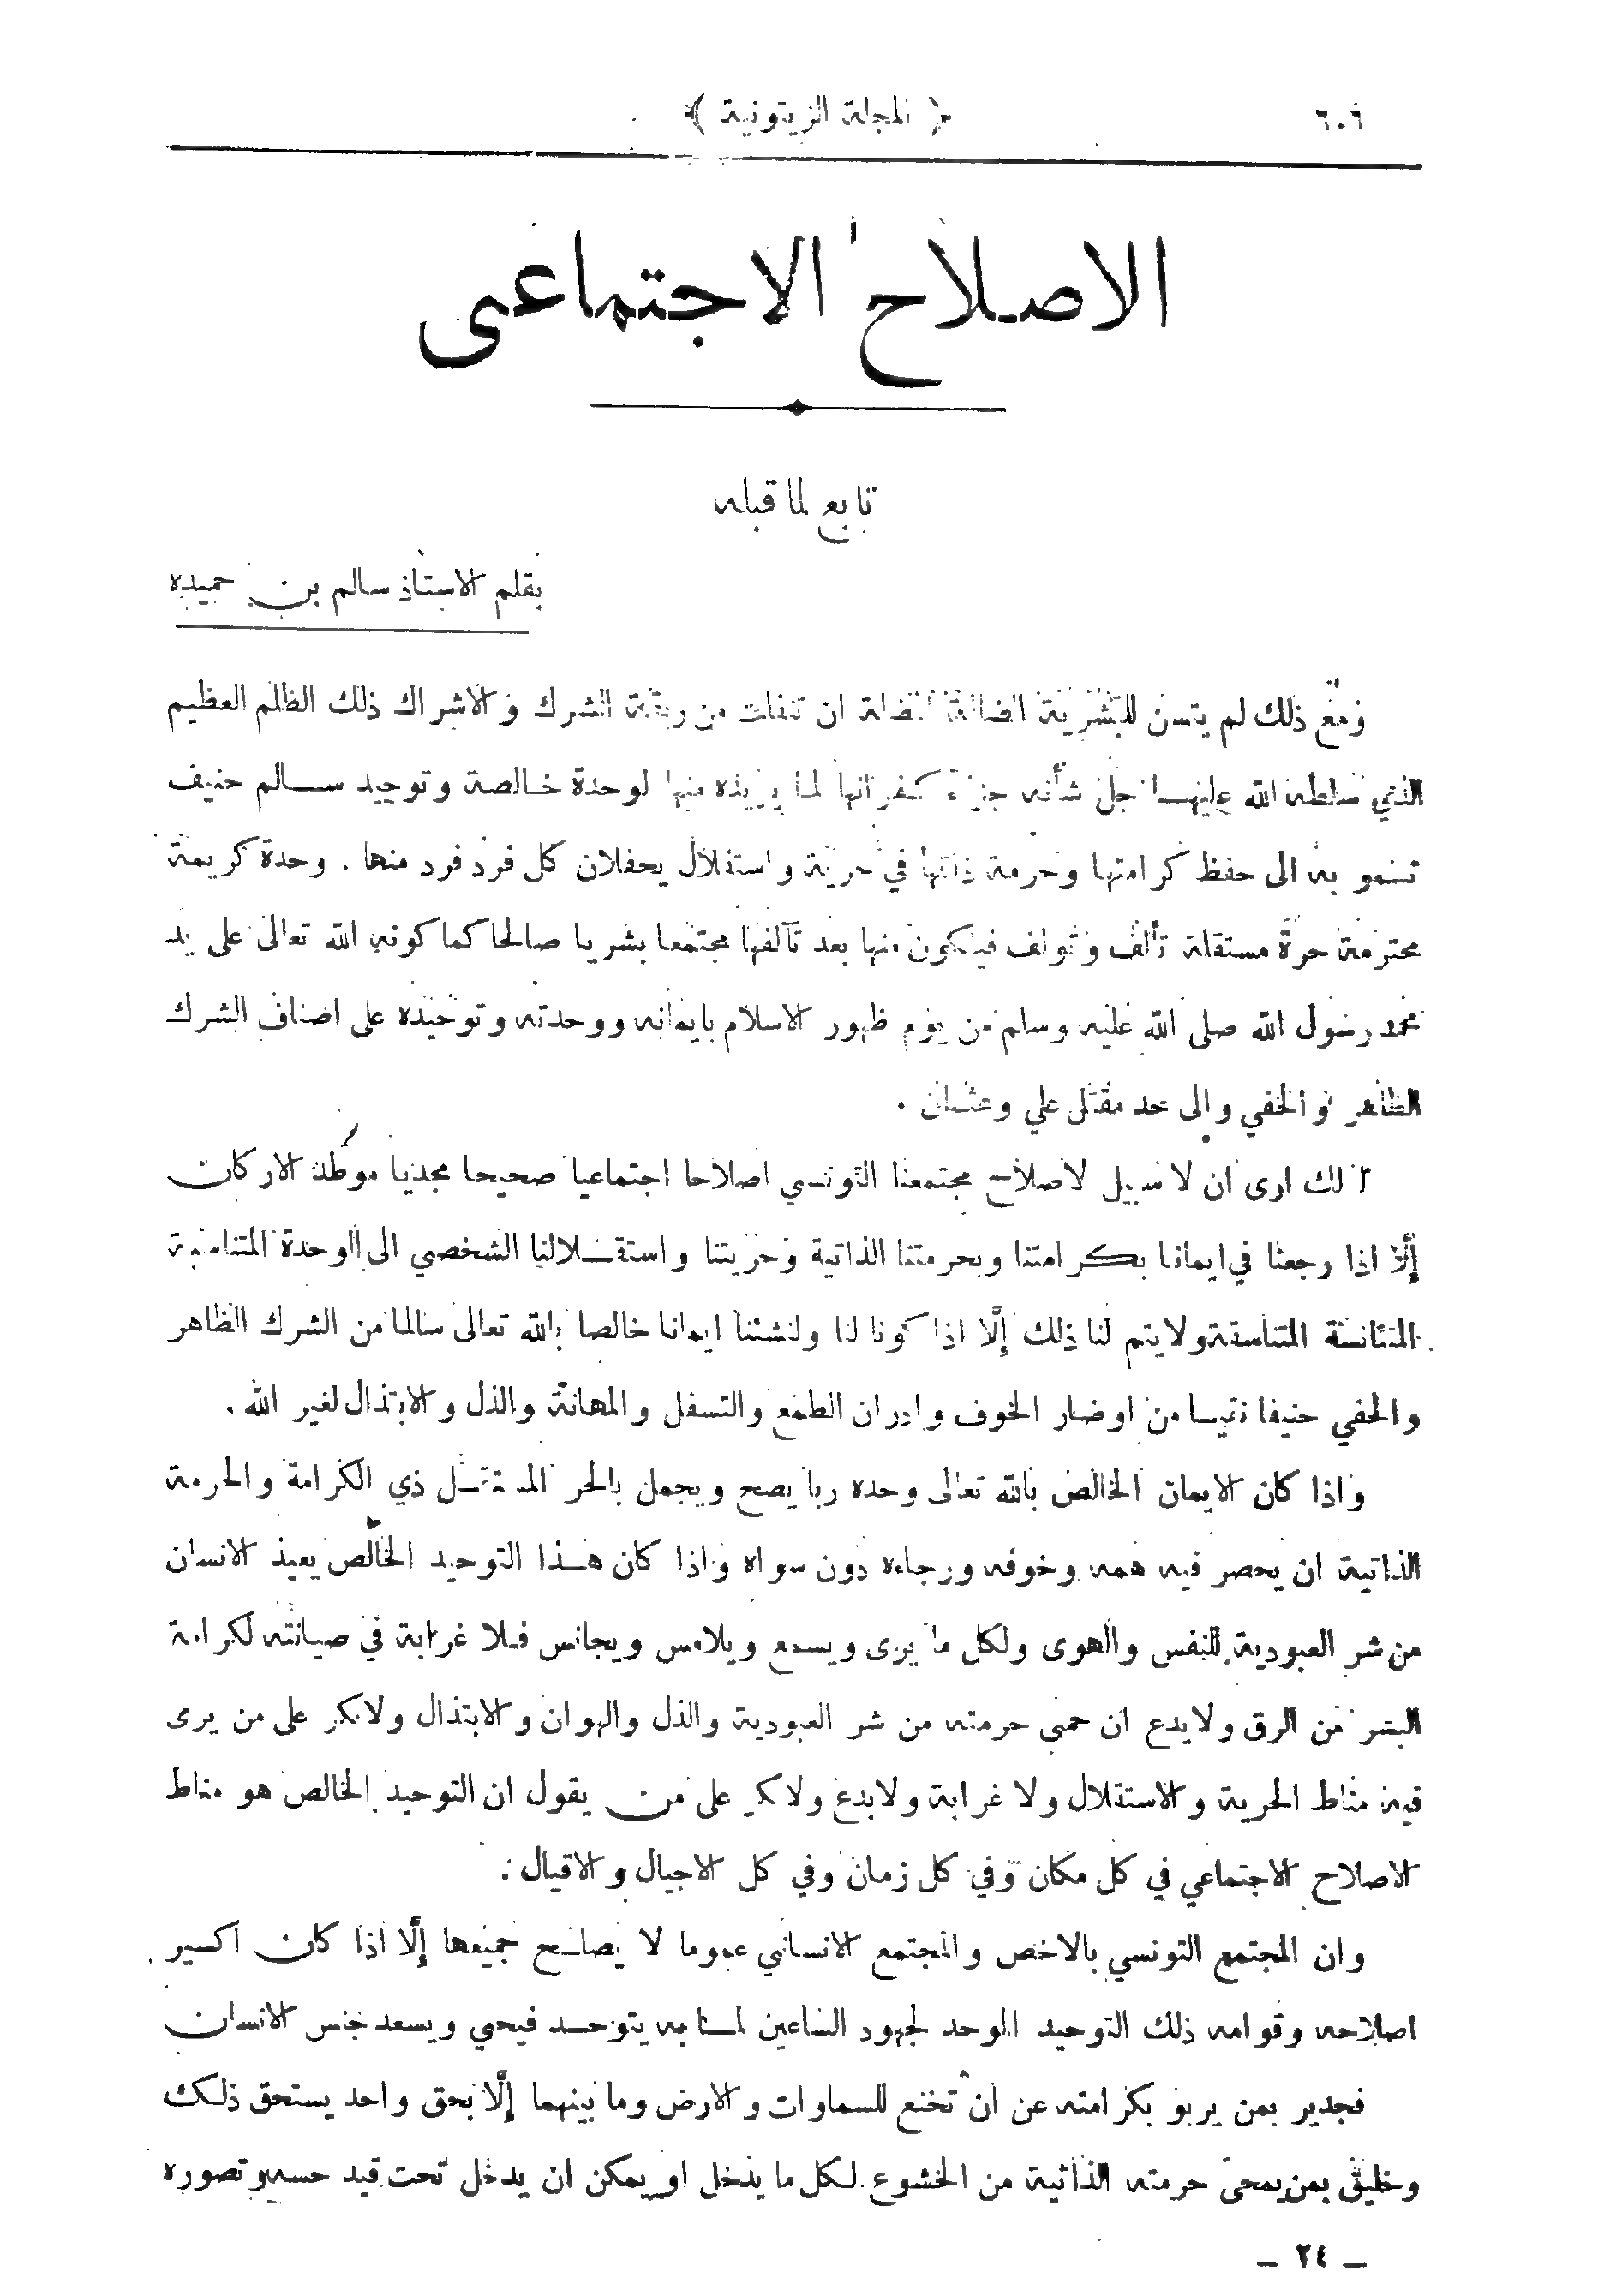 ٦٠٦
﴿ المجلة الزيتونية ﴾
الاصلاح الاجتماعي
تابع لما قبله
بقلم الاستاذ سالم بن حميده
ومع ذلك لم يتسن للبشرية الضالة ان تنفلت من ربقة الشرك والاشراك ذلك الظلم العظيم
الذي سلطه الله عليهـا جل شأنه جزاء كفرانها لما يريده منها لوحدة خـالصة وتوحيد ســالم حنيف
تسمو به الى حفظ كرامتها وحرمة ذاتها في حرية واستقلال يحفلان كل فرد فرد منها . وحدة كريمة
محترمة حرة مستقلة تألف وتولف فيتكون منها بعد تآلفها مجتمعا بشريا صالحا كما كونه الله تعالى على يد
محمد رسول الله صلى الله عليه وسلم من يوم ظهور الاسلام بايمانه ووحدته وتوحيده على اصناف الشرك
الظاهر والخفي والى حد مقتل علي وعثمـان .
لذلك ارى ان لا سبيل لاصلاح مجتمعنا التونسي اصلاحا اجتماعيا صحيحا مجديا موطد الاركان
إلّا اذا رجعنا في ايماننا بكرامتنا وبحرمتنا الذاتية وحريتنا واستقـلالنا الشخصي الى الوحدة المتناسبة
المتئانسة المتناسقة ولا يتم لنا ذلك إلّا اذا كونا لنا ولنشئنا ايمانا خالصا بالله تعالى سالما من الشرك الظاهر
والخفي حنيفا نقيـا من اوضار الخوف وادران الطمع والتسفل والمهانة والذل والابتذال لغير الله .
واذا كان الايمان الخالص بالله تعالى وحده ربا يصح ويجمل بالحر المستقـل ذي الكرامة والحرمة
الذاتية ان يحصر فيه همه وخوفه ورجاءه دون سواه واذا كان هـذا التوحيد الخالص يعيذ الانسان
من شر العبودية للنفس والهوى ولكل ما يرى ويسمع ويلامس ويجانس فـلا غرابة في صيانته لكرامة
البشر من الرق ولا بدع ان حمى حرمته من شر العبودية والذل والهوان والابتذال ولا نكر على من يرى
فيه مناط الحرية والاستقلال ولا غرابة ولا بدع ولا نكر على من يقول ان التوحيد الخالص هو مناط
الاصلاح الاجتماعي في كل مكان وفي كل زمان وفي كل الاجيال والاقيال .
وان المجتمع التونسي بالاخص والمجتمع الانساني عموما لا يصلـح جميعها إلّا اذا كان اكسير
اصلاحه وقوامه ذلك التوحيد الموحد لجهود الساعين لمـا به يتوحـد فيحمي ويسعد جنس الانسان
فجدير بمن يربو بكرامته عن ان تخنع للسماوات والارض وما بينهما إلّا بحق واحد يستحق ذلـك
وخليق بمن يمحى حرمته الذاتية من الخشوع لكل ما يدخل او يمكن ان يدخل تحت قيد حسه وتصوره
– ٢٤ –